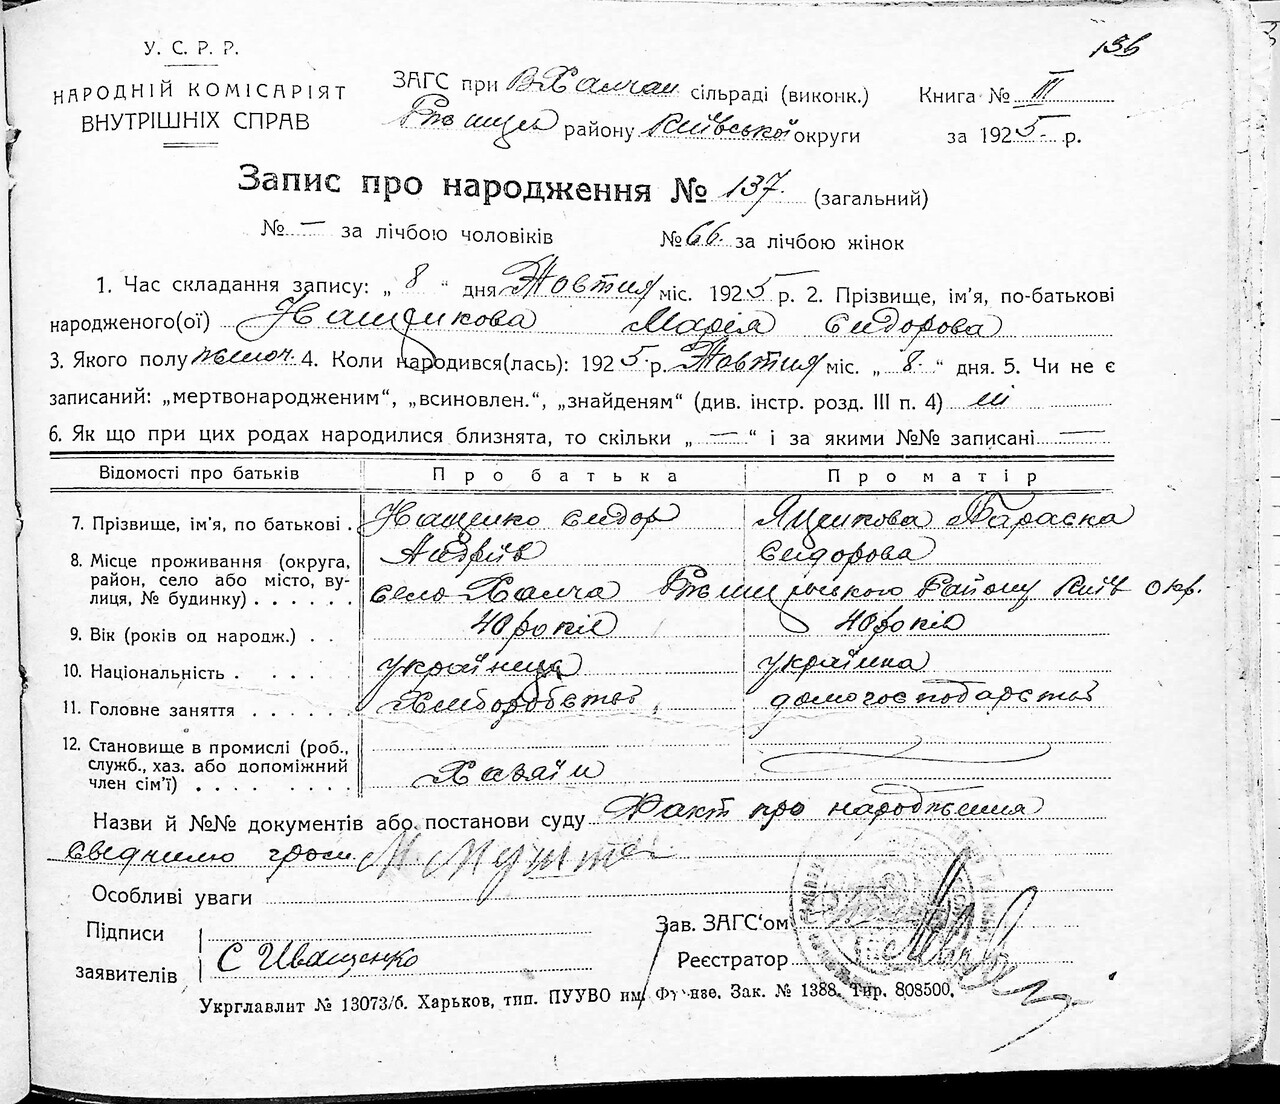 136
У. С. Р. Р.
НАРОДНІЙ КОМІСАРІЯТ
ВНУТРІШНІХ СПРАВ
ЗАГС при В Халчан сільраді (виконк.)
району Київської округи
Книга № III
за 1925 р.
Запис про народження № 137. (загальний)
№ — за лічбою чоловіків № 66. за лічбою жінок
1. Час складання запису: „ 8 “ дня Жовтня міс. 1925 р. 2. Прізвище, ім'я, по-батькові
народженого(ої) Марія Сидорова
3. Якого полу жіноч. 4. Коли народився(лась): 1925 р. Жовтня міс. „ 8 “ дня. 5. Чи не є
записаний: „мертвонародженим“, „всиновлен.“, „знайденям“ (див. інстр. розд. III п. 4)
6. Як що при цих родах народилися близнята, то скільки „ — “ і за якими №№ записані —
Відомості про батьків Про батька Про матір
7. Прізвище, ім'я, по батькові . Іващенко Сидор Параска
Андріїв Сидорова
8. Місце проживання (округа,
район, село або місто, ву-
лиця, № будинку) . . . . . . село Халча Ржищівського Району Київ окр.
9. Вік (років од народж.) . . 40 років 40 років
10. Національність . . . . . українець українка
11. Головне заняття . . . . . . Хліборобство домогосподарство
12. Становище в промислі (роб.,
служб., хаз. або допоміжний
член сім'ї) . . . . . . . . Хазяїн
Назви й №№ документів або постанови суду Факт про народження
свідчимо
Особливі уваги
Підписи
заявителів С Иващенко
Зав. ЗАГС'ом
Реєстратор
Укрглавлит № 13073/б. Харьков, тип. ПУУВО им. Фрунзе. Зак. № 1388. Тир. 808500.